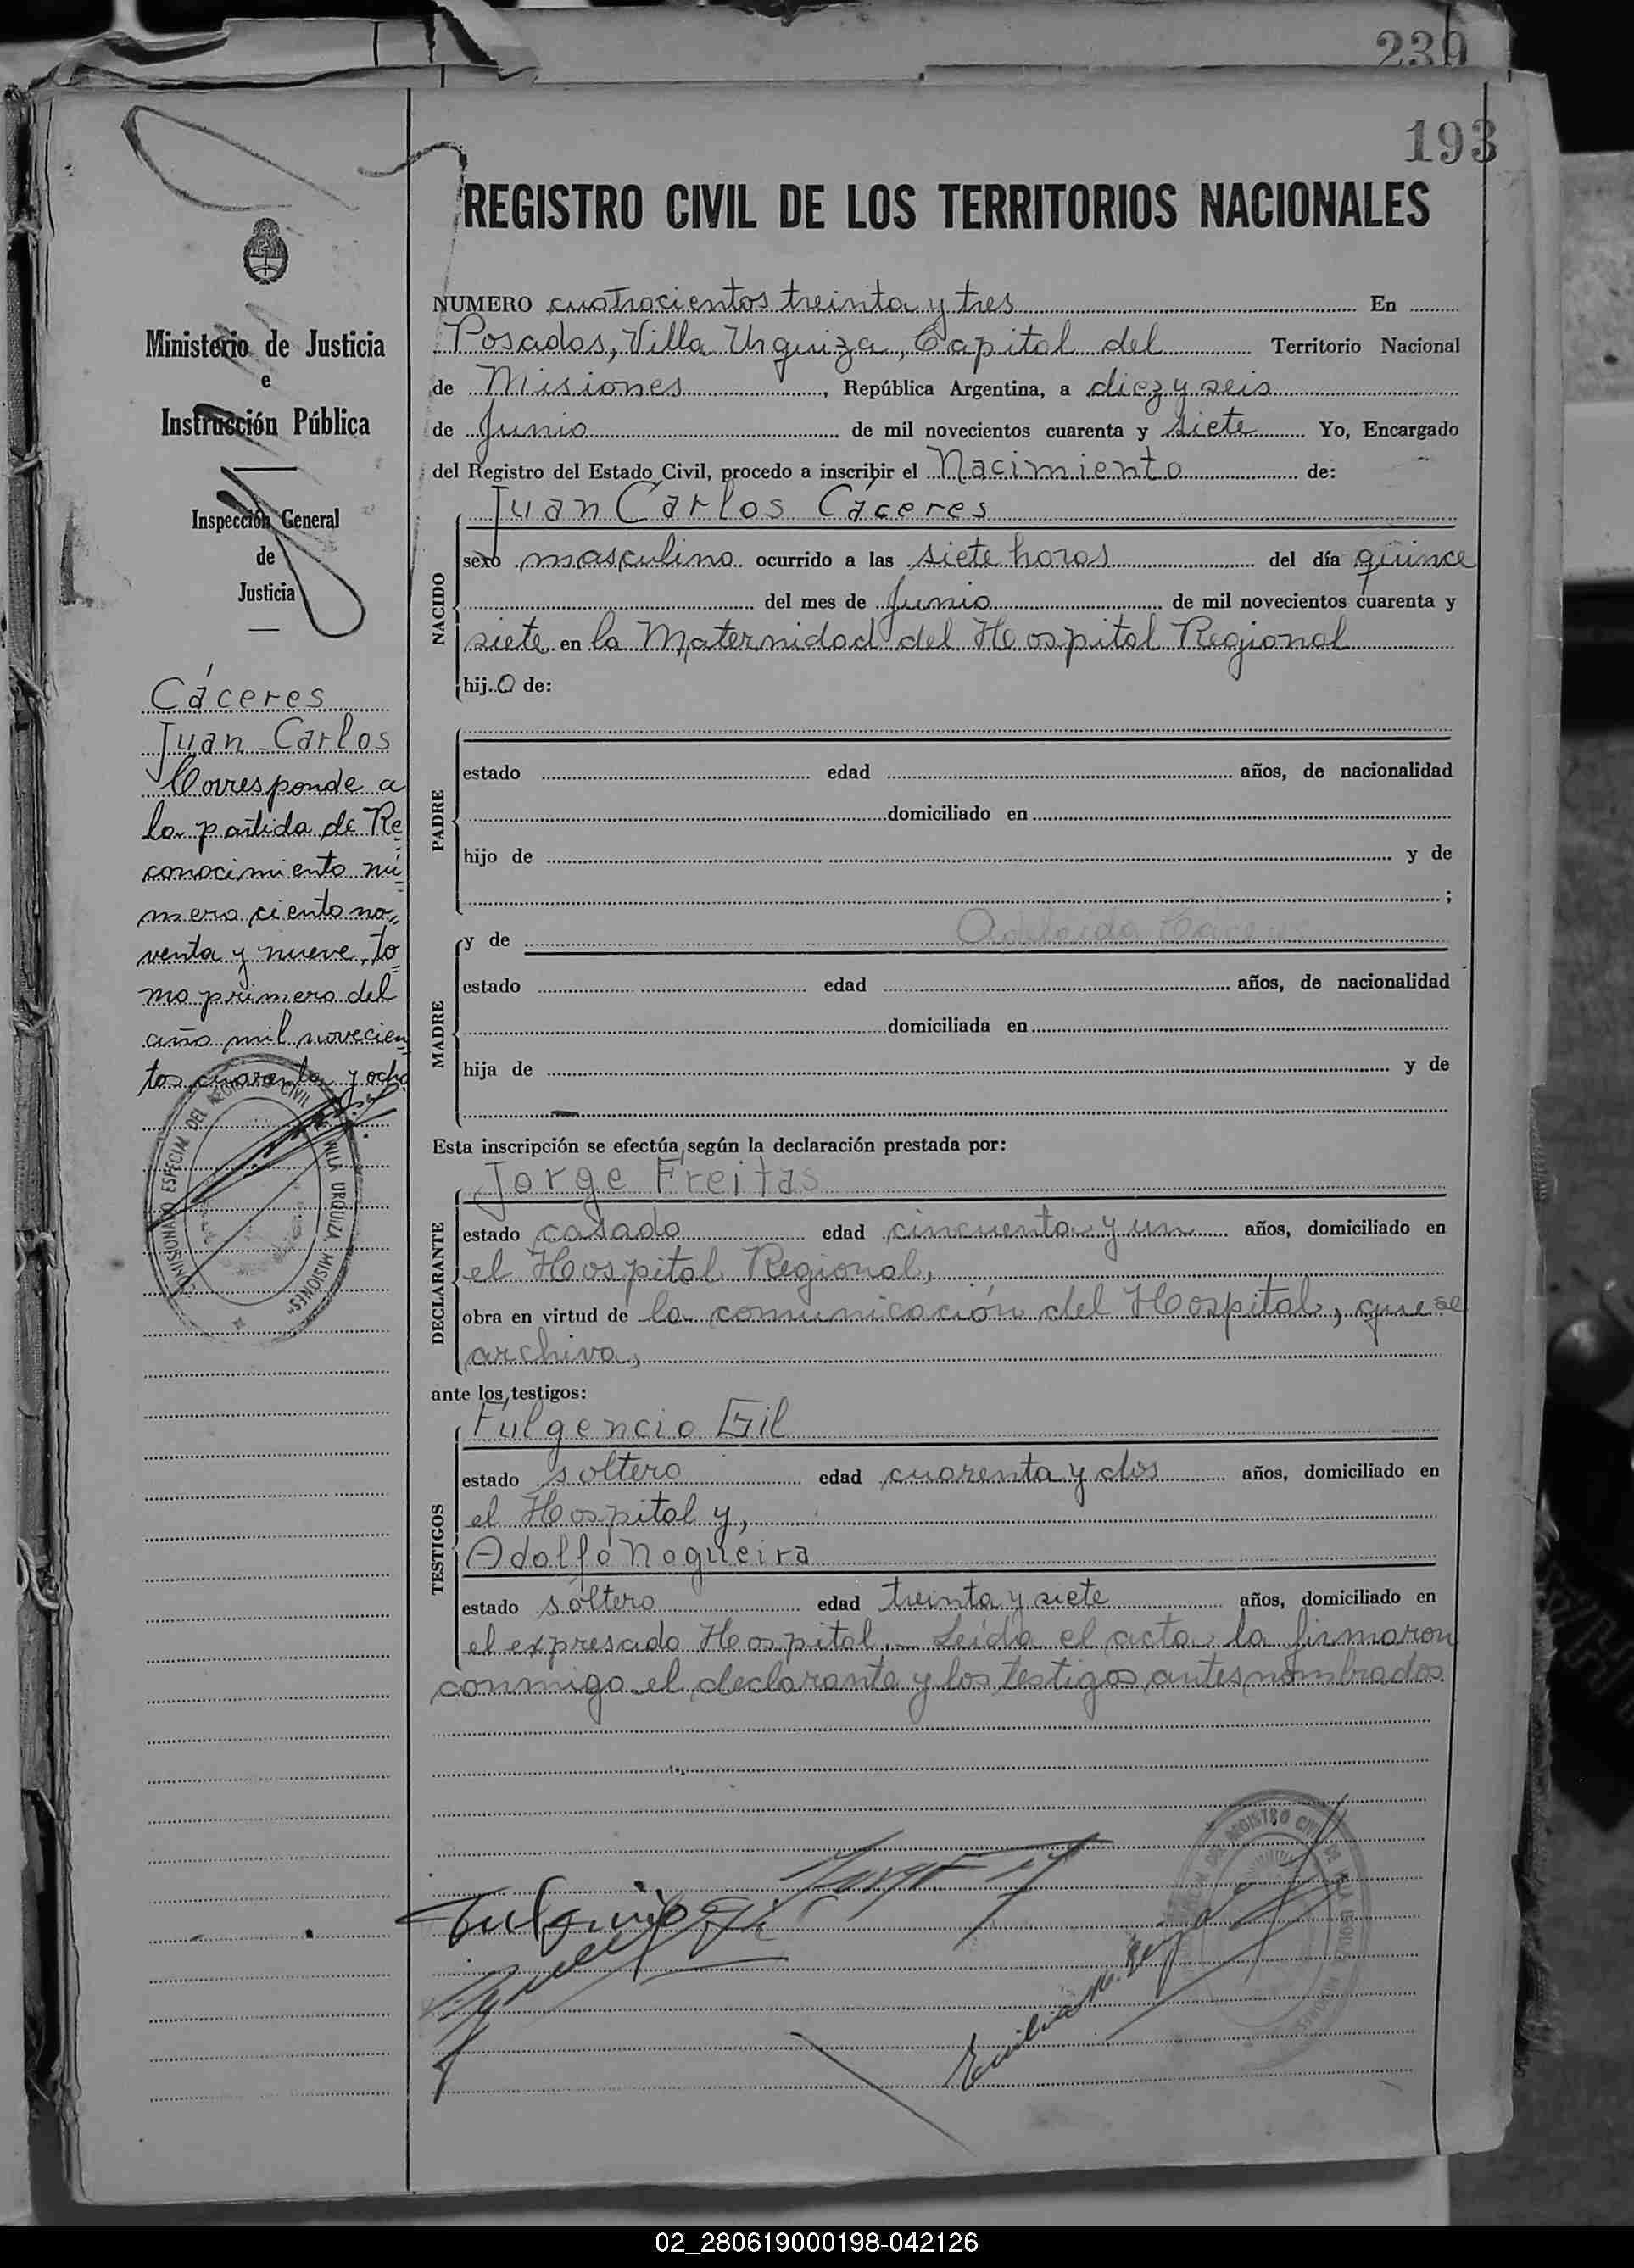 239
193
REGISTRO CIVIL DE LOS TERRITORIOS NACIONALES
Ministerio de Justicia
e
Instrucción Pública
Inspección General
de
Justicia
Cáceres
Juan Carlos
Corresponde a
la partida de Re
conocimiento nú
mero ciento no
venta y nueve, to
mo primero del
año mil novecien
tos cuarenta y ocho
COMISIONADO ESPECIAL DEL REGISTRO CIVIL VILLA URQUIZA MISIONES
NUMERO cuatrocientos treinta y tres En
Posadas, Villa Urquiza, Capital del Territorio Nacional
de Misiones, República Argentina, a diez y seis
de Junio de mil novecientos cuarenta y siete Yo, Encargado
del Registro del Estado Civil, procedo a inscribir el Nacimiento de:
NACIDO
Juan Carlos Cáceres
sexo masculino ocurrido a las siete horas del día quince
del mes de Junio de mil novecientos cuarenta y
siete en la Maternidad del Hospital Regional
hijo de:
PADRE
estado edad años, de nacionalidad
domiciliado en
hijo de y de
;
MADRE
y de Cáceres
estado edad años, de nacionalidad
domiciliada en
hija de y de
Esta inscripción se efectúa según la declaración prestada por:
DECLARANTE
Jorge Freitas
estado casado edad cincuenta y un años, domiciliado en
el Hospital Regional,
obra en virtud de la comunicación del Hospital, que se
archiva,
ante los testigos:
TESTIGOS
Fulgencio Gil
estado soltero edad cuarenta y dos años, domiciliado en
el Hospital y,
Adolfo Nogueira
estado soltero edad treinta y siete años, domiciliado en
el expresado Hospital.- Leída el acta, la firmaron
conmigo el declarante y los testigos antes nombrados.
REGISTRO CIVIL
02_280619000198-042126